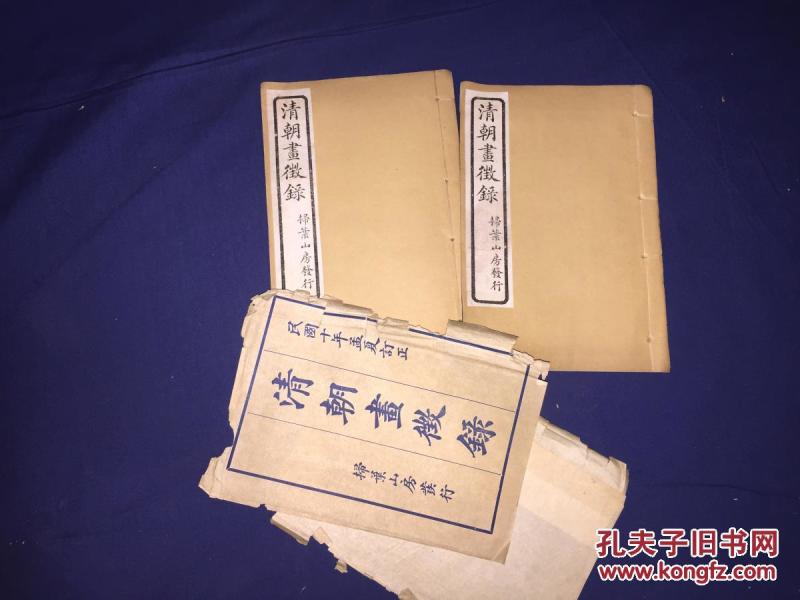 清朝畫徵錄
掃葉山房發行
清朝畫徵錄
掃葉山房發行
民國十年孟夏訂正
清朝畫徵錄
掃葉山房發行
孔夫子旧书网
www.kongfz.com